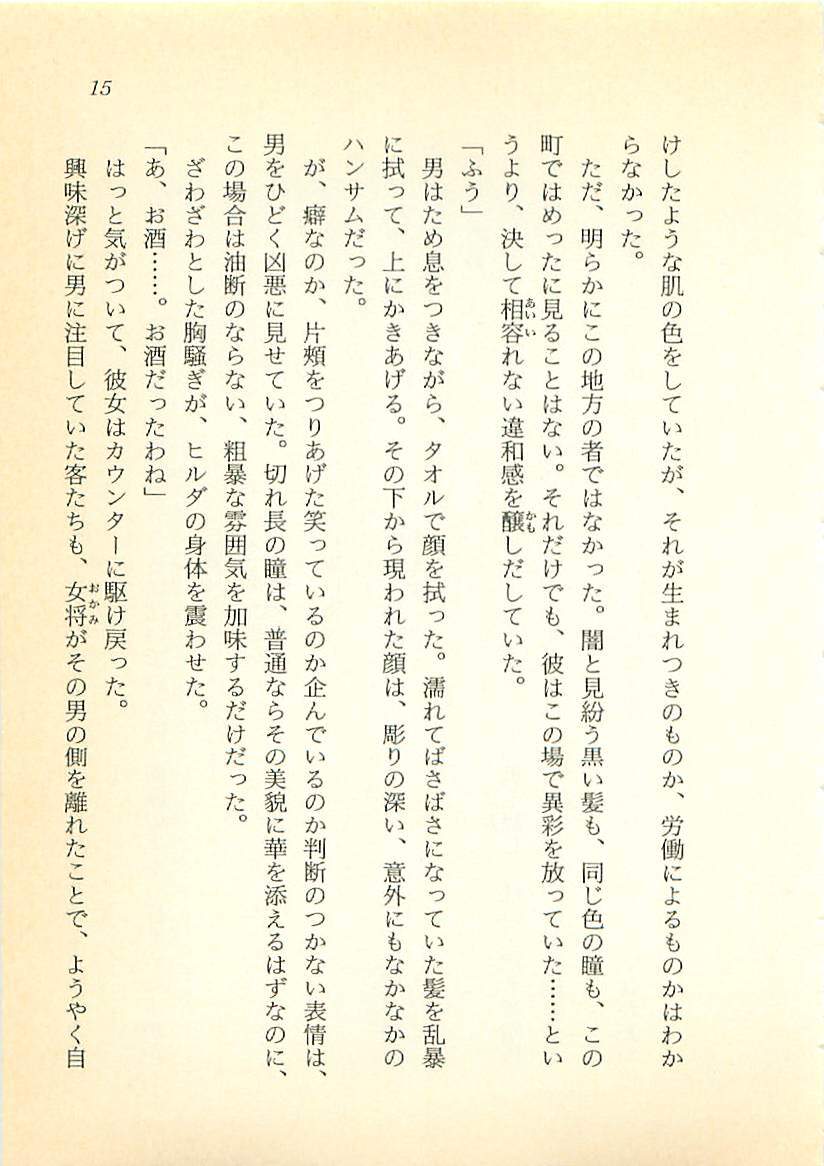 15
けしたような肌の色をしていたが、それが生まれつきのものか、労働によるものかはわか
らなかった。
ただ、明らかにこの地方の者ではなかった。闇と見紛う黒い髪も、同じ色の瞳も、この
町ではめったに見ることはない。それだけでも、彼はこの場で異彩を放っていた……とい
うより、決して相容れない違和感を醸しだしていた。
「ふう」
男はため息をつきながら、タオルで顔を拭った。濡れてばさばさになっていた髪を乱暴
に拭って、上にかきあげる。その下から現われた顔は、彫りの深い、意外にもなかなかの
ハンサムだった。
が、癖なのか、片頰をつりあげた笑っているのか企んでいるのか判断のつかない表情は、
男をひどく凶悪に見せていた。切れ長の瞳は、普通ならその美貌に華を添えるはずなのに、
この場合は油断のならない、粗暴な雰囲気を加味するだけだった。
ざわざわとした胸騒ぎが、ヒルダの身体を震わせた。
「あ、お酒……。お酒だったわね」
はっと気がついて、彼女はカウンターに駆け戻った。
興味深げに男に注目していた客たちも、女将がその男の側を離れたことで、ようやく自